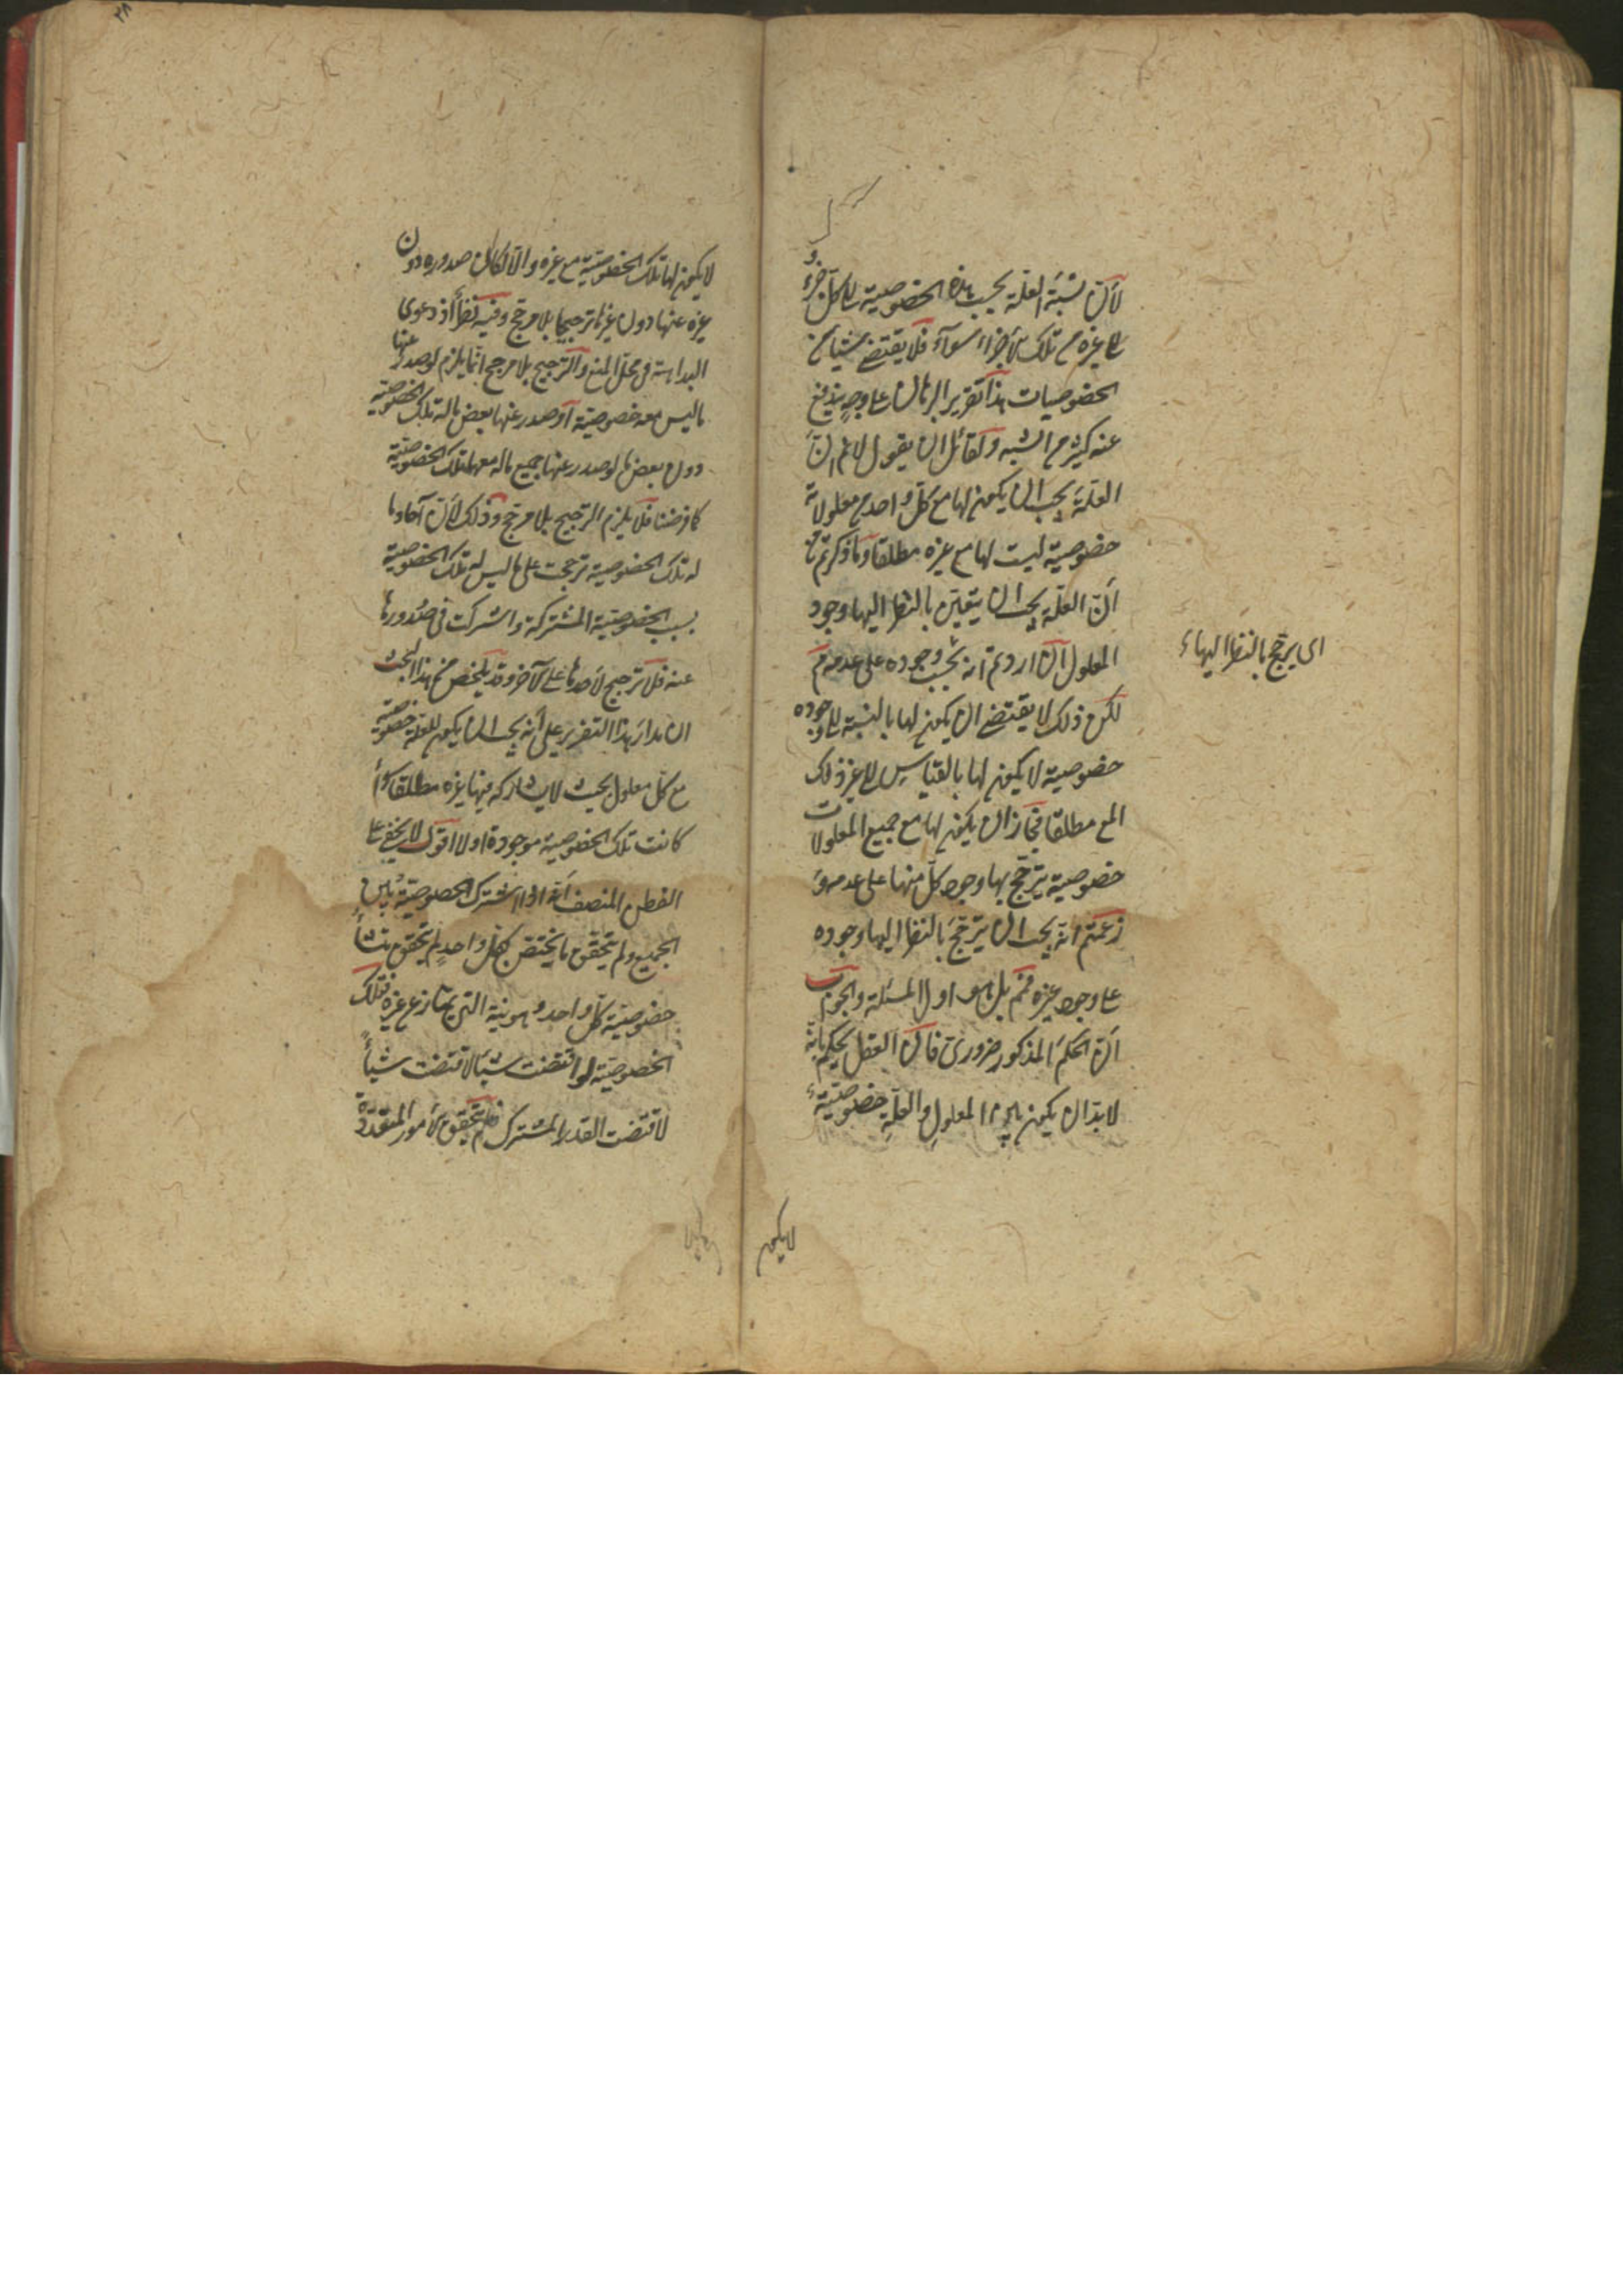 لأنّ نسبة العلّة بحسب هذه الخصوصية الى كل جزء و
الى غيره من تلك الأجزاء سواء فلا يقتضى شيئا من
الخصوصيات هذا تقرير البرهان على وجه يندفع
عنه كثير من الشبه ولقائل ان يقول لا نم انّ
العلّة يجب ان يكون لها مع كلّ واحد من معلولاته
خصوصية ليست لها مع غيره مطلقا وما ذكرتم من
أنّ العلّة يجب ان يتعين بالنظر اليها وجود
اى يرجح بالنظر اليها
المعلول ان اردتم انه يجب وجوده على عدمه فم
لكن ذلك لا يقتضى ان يكون لها بالنسبة الى وجوده
خصوصية لا يكون لها بالقياس الى غير ذلك
المع مطلقا فجاز ان يكون لها مع جميع المعلولات
خصوصية يترجّح بها وجود كلّ منها على عدمه و
زعمتم انه يجب ان يترجّح بالنظر اليها وجوده
على وجود غيره فمم بل هو اول المسئلة والجواب
انّ الحكم المذكور ضرورى فان العقل يحكم بانّه
لا بدّ ان يكون بين المعلول والعلّة خصوصيّة
لا يكون
لا يكون لها تلك الخصوصيّة مع غيره والّا لكان صدوره دون
غيره عنها دون غيرها ترجيحا بلا مرجّح وفيه نظر اذ دعوى
البداهة فى محل المنع والترجيح بلا مرجح انّما يلزم لو صدر عنها
ما ليس معه خصوصيّة او صدر عنها بعض ماله تلك الخصوصيّة
دون بعض اما لو صدر عنها جميع ماله معها تلك الخصوصيّة
كما فرضنا فلا يلزم الترجيح بلا مرجّح وذلك لأنّ آحادها
له تلك الخصوصية ترجحت على ما ليس له تلك الخصوصية
بسبب الخصوصيّة المشتركة واشتركت فى صدورها
عنه فلا ترجيح لأحدها على الآخر وقد يلخص من هذا البحث
ان مدار هذا التقرير على أنه يجب ان يكون للعلّة خصوصيّة
مع كل معلول بحيث لا يشاركه فيها غيره مطلقا سواء
كانت تلك الخصوصية موجودة او لا اقول لا يخفى على
الفطن المنصف أنّه اذا اشترك الخصوصيّة بين
الجميع ولم يتحقق ما يختصّ بكلّ واحد لم يتحقق منشأ
خصوصيّة كلّ واحد وهويته التى يمتاز عن غيره فتلك
الخصوصيّة لو اقتضت شيئا لاقتضت شيئاً
لاقتضت القدر المشترك فلم يتحقق الأمور المتعدّدة